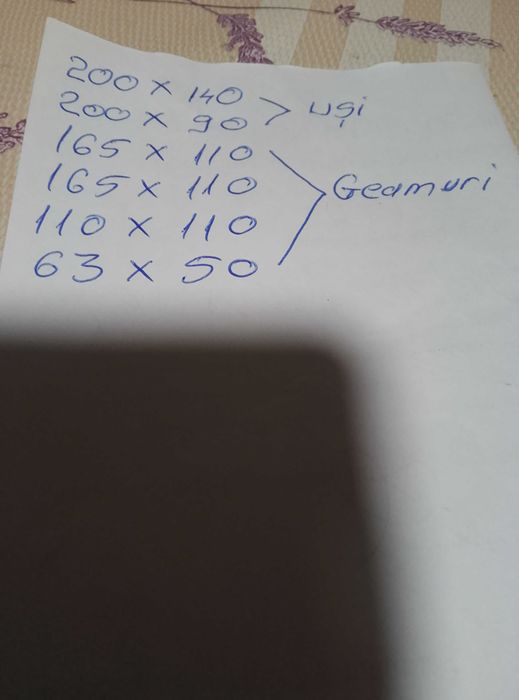 200 x 140
200 x 90
uși
165 x 110
165 x 110
110 x 110
63 x 50
Geamuri